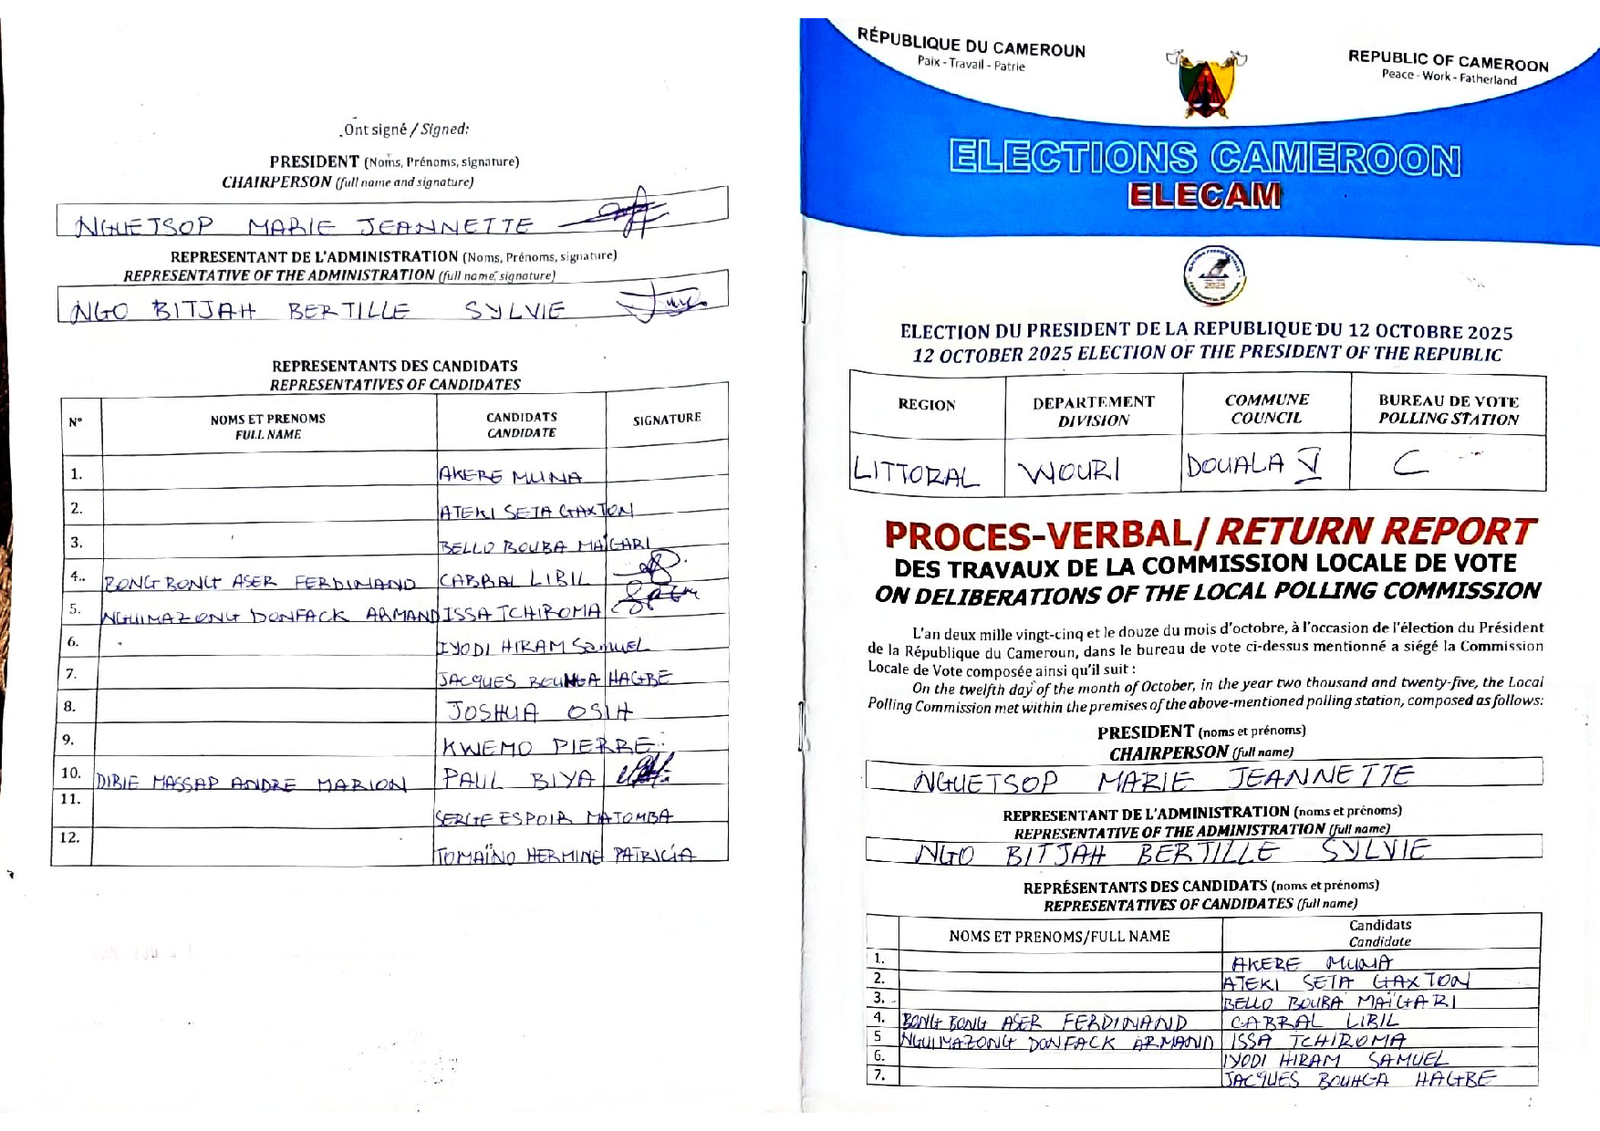 Ont signé / Signed:
PRESIDENT (Noms, Prénoms, signature)
CHAIRPERSON (full name and signature)
NGUETSOP MARIE JEANNETTE
REPRESENTANT DE L'ADMINISTRATION (Noms, Prénoms, signature)
REPRESENTATIVE OF THE ADMINISTRATION (full name, signature)
NGO BITJAH BERTILLE SYLVIE
REPRESENTANTS DES CANDIDATS
REPRESENTATIVES OF CANDIDATES
N° NOMS ET PRENOMS CANDIDATS SIGNATURE
FULL NAME CANDIDATE
1. AKERE MUNA
2. ATEKI SETA GAXTON
3. BELLO BOUBA MAIGARI
4.. BONG BONG ASER FERDINAND CABRAL LIBIL
5. NGUIMAZONG DONFACK ARMAND ISSA TCHIROMA
6. IYODI HIRAM SAMUEL
7. JACQUES BOUHGA HAGBE
8. JOSHUA OSIH
9. KWEMO PIERRE
10. DIBIE MASSAP ANDRE MARION PAUL BIYA
11. SERGE ESPOIR MATOMBA
12. TOMAÏNO HERMINE PATRICIA
RÉPUBLIQUE DU CAMEROUN
Paix - Travail - Patrie
REPUBLIC OF CAMEROON
Peace - Work - Fatherland
ELECTIONS CAMEROON
ELECAM
2025
ELECTION DU PRESIDENT DE LA REPUBLIQUE DU 12 OCTOBRE 2025
12 OCTOBER 2025 ELECTION OF THE PRESIDENT OF THE REPUBLIC
REGION DEPARTEMENT COMMUNE BUREAU DE VOTE
DIVISION COUNCIL POLLING STATION
LITTORAL WOURI DOUALA V C
PROCES-VERBAL/RETURN REPORT
DES TRAVAUX DE LA COMMISSION LOCALE DE VOTE
ON DELIBERATIONS OF THE LOCAL POLLING COMMISSION
L'an deux mille vingt-cinq et le douze du mois d'octobre, à l'occasion de l'élection du Président
de la République du Cameroun, dans le bureau de vote ci-dessus mentionné a siégé la Commission
Locale de Vote composée ainsi qu'il suit :
On the twelfth day of the month of October, in the year two thousand and twenty-five, the Local
Polling Commission met within the premises of the above-mentioned polling station, composed as follows:
PRESIDENT (noms et prénoms)
CHAIRPERSON (full name)
NGUETSOP MARIE JEANNETTE
REPRESENTANT DE L'ADMINISTRATION (noms et prénoms)
REPRESENTATIVE OF THE ADMINISTRATION (full name)
NGO BITJAH BERTILLE SYLVIE
REPRÉSENTANTS DES CANDIDATS (noms et prénoms)
REPRESENTATIVES OF CANDIDATES (full name)
NOMS ET PRENOMS/FULL NAME Candidats
Candidate
1. AKERE MUNA
2. ATEKI SETA GAXTON
3. BELLO BOUBA MAÏGARI
4. BONG BONG ASER FERDINAND CABRAL LIBIL
5 NGUIMAZONG DONFACK ARMAND ISSA TCHIROMA
6. IYODI HIRAM SAMUEL
7. JACQUES BOUHGA HAGBE